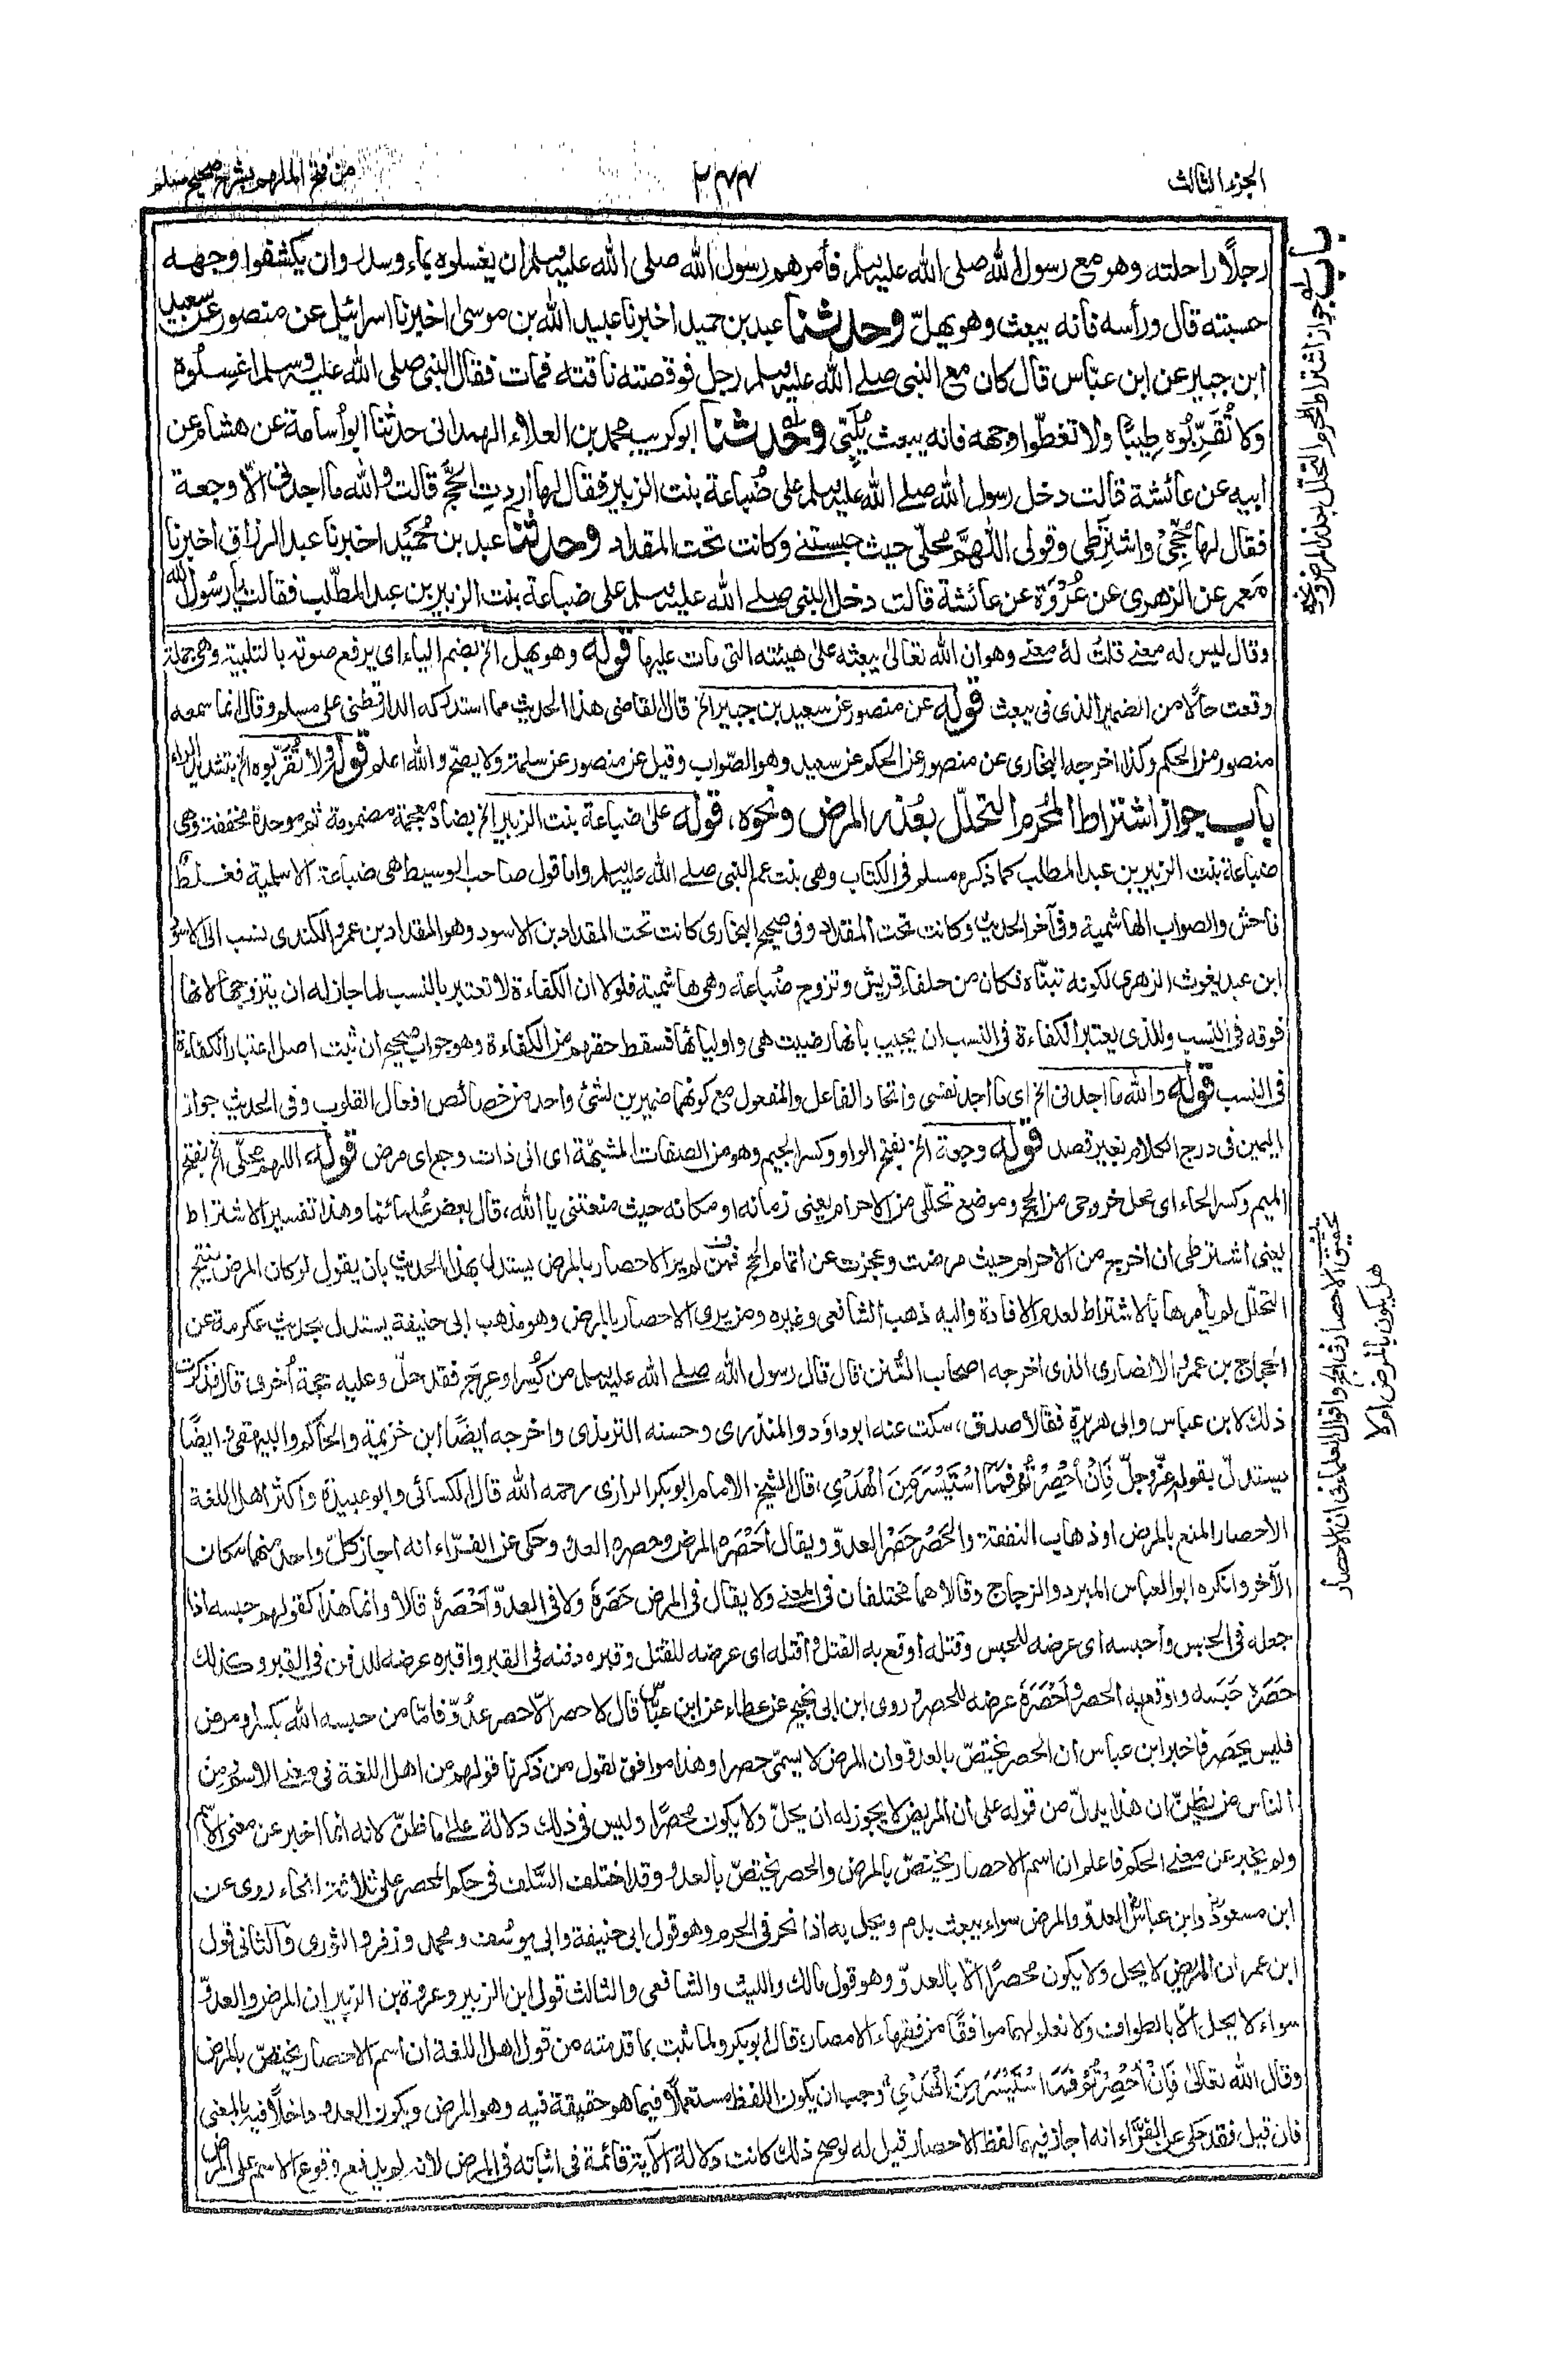 الجزء الثالث
٢٣٣
من فتح الملهم بشرح صحيح مسلم
باب جواز اشتراط المحرم التحلل بعذر المرض ونحوه
رجلاً راحلته وهو مع رسول الله صلى الله عليه وسلم فأمرهم رسول الله صلى الله عليه وسلم ان يغسلوه بماء وسدر وان يكشفوا وجهه
حسبته قال ورأسه فانه يبعث وهو يهلّ وحدثنا عبد بن حميد اخبرنا عبيد الله بن موسى اخبرنا اسرائيل عن منصور عن سعيد
ابن جبير عن ابن عبّاس قال كان مع النبي صلى الله عليه وسلم رجل فوقصته ناقته فمات فقال النبي صلى الله عليه وسلم اغسِلُوه
ولا تُقَرِّبُوه طِيبًا ولا تغطّوا وجهه فانه يبعث يُلَبّي وحدثنا ابو كريب محمد بن العلاء الهمداني حدثنا ابو أسامة عن هشام عن
ابيه عن عائشة قالت دخل رسول الله صلى الله عليه وسلم على ضُباعة بنت الزبير فقال لها اردتِ الحجَّ قالت والله ما اجدني الّا وجعة
فقال لها حُجِّيْ واشترطي وقولي اللّٰهمَّ محلّي حيث حبستني وكانت تحت المقداد وحدثنا عبد بن حُمَيد اخبرنا عبد الرزاق اخبرنا
مَعمر عن الزهري عن عُرْوَة عن عائشة قالت دخل النبي صلى الله عليه وسلم على ضباعة بنت الزبير بن عبد المطّلب فقالت يا رسول الله
وقال ليس له معنى قلتُ لهُ معنى وهو ان الله تعالى يبعثه على هيئته التي مات عليها قوله وهو يهل الخ بضم الياء اي يرفع صوته بالتلبية وهي جملة
وقعت حالًا من الضمير الذي في يبعث قوله عن منصور عن سعيد بن جبير الخ قال القاضي هذا الحديث مما استدركه الدارقطني على مسلم وقال انما سمعه
منصور من الحكم وكذا اخرجه البخاري عن منصور عن الحكم عن سعيد وهو الصّواب وقيل عن منصور عن سلمة ولا يصحّ والله اعلم قوله ولا تُقَرّبوه الخ بتشديد الراء
باب جواز اشتراط المُحرم التحلّل بعُذر المرض ونحوه، قوله على ضباعة بنت الزبير الخ بضاد معجمة مضمومة ثم موحدة مخففة وهي
ضباعة بنت الزبير بن عبد المطلب كما ذكره مسلم في الكتاب وهي بنت عم النبي صلى الله عليه وسلم واما قول صاحب الوسيط هي ضباعة الاسلمية فغلطٌ
فاحش والصواب الهاشمية وفي آخر الحديث وكانت تحت المقداد وفي صحيح البخاري كانت تحت المقداد بن الاسود وهو المقداد بن عمرو الكندي نسب الى الاسود
ابن عبد يغوث الزهري لكونه تبنّاه فكان من حلفاء قريش وتزوج ضُباعة وهي هاشمية فلولا ان الكفاءة لا تعتبر بالنسب لما جاز له ان يتزوجها لانها
فوقه في النسب وللذي يعتبر الكفاءة في النسب ان يجيب بانها رضيت هي واولياؤها فسقط حقهم من الكفاءة وهو جواب صحيح ان ثبت اصل اعتبار الكفاءة
في النسب قوله والله ما اجدني الخ اي ما اجد نفسي واتحاد الفاعل والمفعول مع كونهما ضميرين لشيء واحد من خصائص افعال القلوب وفي الحديث جواز
اليمين في درج الكلام بغير قصد قوله وجعة الخ بفتح الواو وكسر الجيم وهو من الصفات المشبّهة اي اني ذات وجع اي مرض قوله اللهم محلّي الخ بفتح
الميم وكسر الحاء اي محل خروجي من الحج وموضع تحلّلي من الاحرام يعني زمانه او مكانه حيث منعتني يا الله، قال بعض علمائنا وهذا تفسير الاشتراط
يعني اشترطي ان اخرج من الاحرام حيث مرضت وعجزت عن اتمام الحج فمن لم ير الاحصار بالمرض يستدل بهذا الحديث بان يقول لو كان المرض ينتج
التحلّل لم يأمرها بالاشتراط لعدم الافادة واليه ذهب الشافعي وغيره ومن يرى الاحصار بالمرض وهو مذهب ابي حنيفة يستدل بحديث عكرمة عن
الحجاج بن عمرو الانصاري الذي اخرجه اصحاب السُّنن قال قال رسول الله صلى الله عليه وسلم من كُسِر او عرج فقد حلّ وعليه حجة أخرى قال فذكرت
ذلك لابن عباس وابي هريرة فقالا صدق، سكت عنه ابو داؤد والمنذري وحسنه الترمذي واخرجه ايضًا ابن خزيمة والحاكم والبيهقي، ايضًا
يستدلّ بقوله عزّوجلّ فَاِنْ أُحْصِرْتُمْ فَمَا اسْتَيْسَرَ مِنَ الْهَدْيِ، قال الشيخ الامام ابو بكر الرازي رحمه الله قال الكسائي وابو عبيدة واكثر اهل اللغة
الاحصار المنع بالمرض او ذهاب النفقة والحَصْرُ حَصْر العدوّ ويقال اَحْصَره المرض وحصره العدو وحكي عن الفرّاء انه اجاز كلّ واحد منهما مكان
الآخر وانكره ابو العباس المبرد والزجاج وقالا هما مختلفان في المعنى ولا يقال في المرض حَصَرَهُ ولا في العدوّ اَحْصَرَهُ قالا وانما هذا كقولهم حبسه اذا
جعله في الحبس وأحبسه اي عرضه للحبس وقتله اوقع به القتل واقتله اي عرضه للقتل وقبره دفنه في القبر واقبره عرضه للدفن في القبر وكذلك
حَصَرَهُ حَبَسه واوقع به الحصر واَحْصَرَهُ عرضه للحصر وروى ابن ابي نجيح عن عطاء عن ابن عبّاس قال لا حصر الّا حصر عدُوّ فامّا من حبسه الله بكسر او مرض
فليس بحصر فاخبر ابن عباس ان الحصر يختصّ بالعدو وان المرض لا يسمّى حصرا وهذا موافق لقول من ذكرنا قولهم من اهل اللغة في معنى الاسم ومن
الناس من يظنّ ان هذا يدلّ من قوله على ان المريض لا يجوز له ان يحلّ ولا يكون مُحصرًا وليس في ذلك دلالة على ما ظنّ لانه انما اخبر عن معنى الاسم
ولم يخبر عن معنى الحكم فاعلم ان اسم الاحصار يختصّ بالمرض والحصر يختصّ بالعدو وقد اختلف السَّلف في حكم المحصر على ثلاثة انحاء روي عن
ابن مسعود وابن عباس العدوّ والمرض سواء يبعث بدم ويحل به اذا نحر في الحرم وهو قول ابي حنيفة وابي يوسُف ومحمد وزفر والثوري والثاني قول
ابن عمر ان المريض لا يحل ولا يكون محصرًا الّا بالعدوّ وهو قول مالك والليث والشافعي والثالث قول ابن الزبير وعروة بن الزبير ان المرض والعدوّ
سواء لا يحل الّا بالطواف ولا نعلم لهما موافقًا من فقهاء الامصار، قال ابو بكر ولما ثبت بما قدمته من قول اهل اللغة ان اسم الاحصار يختصّ بالمرض
وقال الله تعالى فَاِنْ اُحْصِرْتُمْ فَمَا اسْتَيْسَرَ مِنَ الْهَدْيِ وجب ان يكون اللفظ مستعملًا فيما هو حقيقة فيه وهو المرض ويكون العدو داخلًا فيه بالمعنى
فان قيل فقد حكي عن الفرّاء انه اجاز فيهما لفظ الاحصار قيل له لو صح ذلك كانت دلالة الآية قائمة في اثباته في المرض لانه لم يدفع وقوع الاسم على المرض
تحقيق الاحصار في الحج واقوال العلماء في ان الاحصار
هل يكون بالمرض ام لا